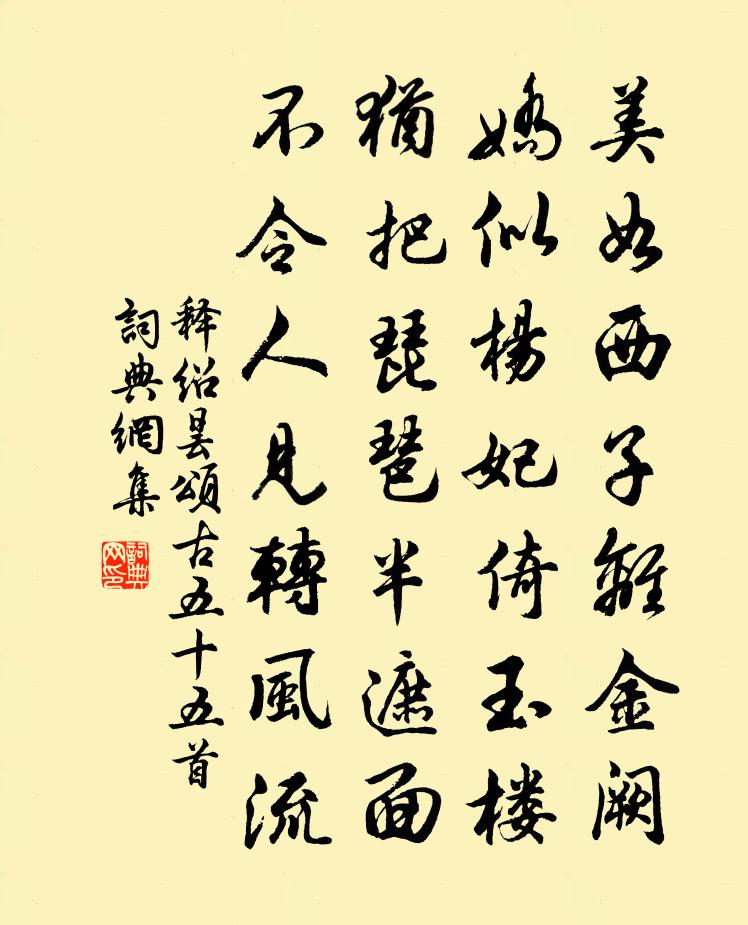 美如西子離金闕
嬌似楊妃倚玉楼
猶把琵琶半遮面
不令人見轉風流
释绍曇頌古五十五首
詞典網集
詞典
网印